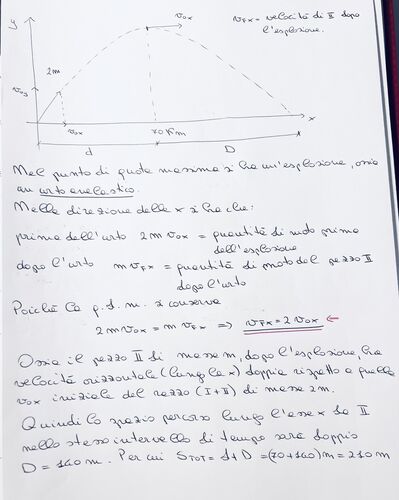 y
v₀x
vFx = velocità di II dopo
l'esplosione.
2m
v₀y
v₀x
70 m
x
d
D
Nel punto di quota massima si ha un'esplosione, ossia
un urto anelastico.
Nella direzione delle x si ha che:
prima dell'urto 2m v₀x = quantità di moto prima
dell'esplosione
dopo l'urto m vFx = quantità di moto del pezzo II
dopo l'urto
Poiché la q.d.m. si conserva
2m v₀x = m vFx ⇒ vFx = 2 v₀x ←
Ossia il pezzo II di massa m, dopo l'esplosione, ha
velocità orizzontale (lungo la x) doppia rispetto a quella
v₀x iniziale del razzo (I+II) di massa 2m.
Quindi lo spazio percorso lungo l'asse x da II
nello stesso intervallo di tempo sarà doppio
D = 140 m. Per cui STOT = d+D = (70+140) m = 210 m